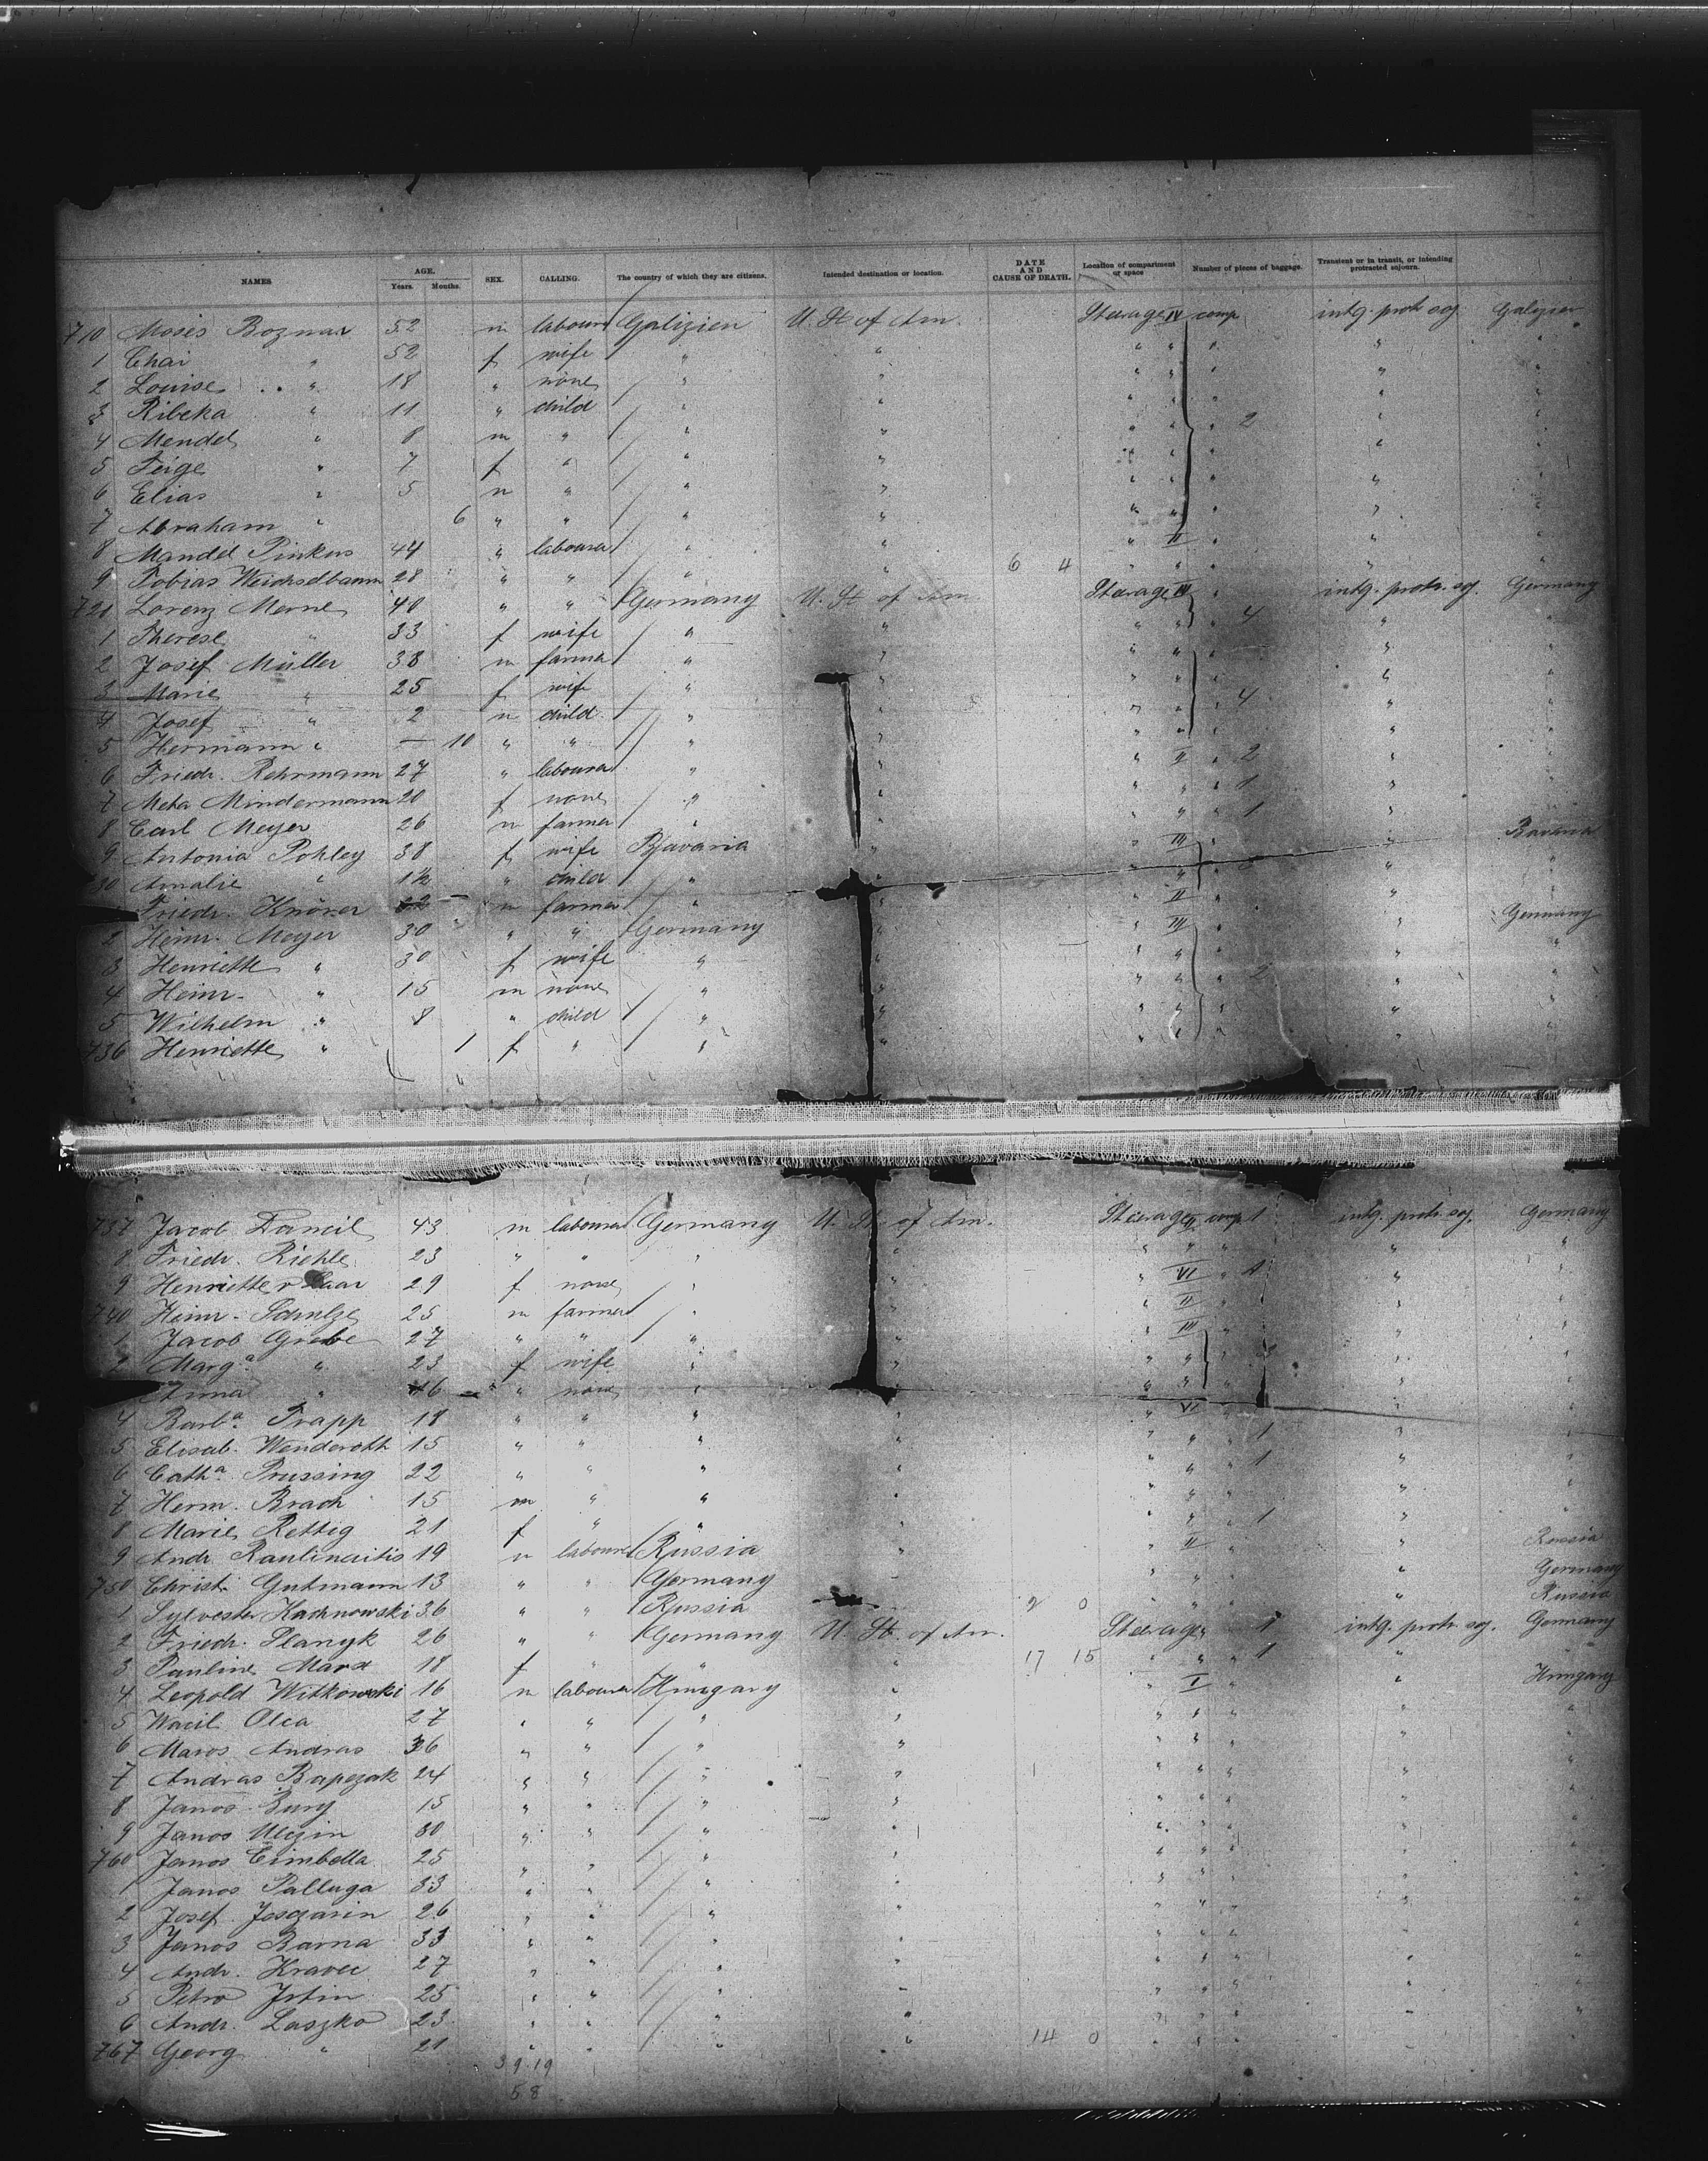 NAMES AGE. Years. Months. SEX. CALLING. The country of which they are citizens. Intended destination or location. DATE AND CAUSE OF DEATH. Location of compartment or space Number of pieces of baggage. Transient or in transit, or intending protracted sojourn.
710 Moses Boznar 52 m labourer Galizien U. St of Am. Steerage IV comp intg. protr soj Galizien
1 Chai " 52 f wife " " " " " " "
2 Louise " 18 " none " " " " " " "
3 Ribeka " 11 " child " " " " " " "
4 Mendel " 8 m " " " " " " 2 " "
5 Feige " 7 f " " " " " " " "
6 Elias " 5 m " " " " " " " "
7 Abraham " 6 " " " " " " " " "
8 Mandel Pinkus 44 " labourer " " " II " " "
9 Tobias Weichselbaum 28 " " " " 6 4 " " " " "
721 Lorenz Merne 40 " " Germany U. St of Am Steerage III " intg. protr. soj. Germany
1 Therese " 33 f wife " " " " " 4 " "
2 Josef Müller 38 m farmer " " " " " " "
3 Marie " 25 f wife " " " " " " "
4 Josef " 2 m child " " " " " 4 " "
5 Hermann " — 10 " " " " " " " " "
6 Friedr. Rehrmann 27 " labourer " " " II " 2 " "
7 Meta Mindermann 20 f none " " " " " 1 " "
8 Carl Meyer 26 m farmer " " " " " 1 " "
9 Antonia Pohley 38 f wife Bavaria " " III " " Bavaria
30 Amalie " 1½ " child " " " " " " "
Friedr. Knörer 22 m farmer " " " II " " "
2 Heinr. Meyer 30 " " Germany " " III " " Germany
3 Henriette " 30 f wife " " " " " " "
4 Heinr. " 15 m none " " " " " 2 " "
5 Wilhelm " 8 " child " " " " " " "
736 Henriette " 1 f " " " " " " " "
737 Jacob Daneil 43 m labourer Germany U. St of Am. Steerage II comp 1 intg. protr soj. Germany
8 Friedr. Riehle 23 " " " " " " " " "
9 Henriette v Laar 29 f none " " " VI " 1 " "
740 Heinr. 25 m farmer " " " II " " "
1 Jacob Grebe 27 " " " " " III " " "
2 Marg.a " 23 f wife " " " " " " "
Anna " 16 " none " " " " " " "
4 Barb.a Trapp 18 " " " " " VI " " "
5 Elisab. Wenderoth 15 " " " " " " " 1 " "
6 Cath.a Prussing 22 " " " " " " " 1 " "
7 Herm. Brach 15 m " " " " " " " "
8 Marie Rettig 21 f " " " " " " 1 " "
9 Andr. Raulinaitis 19 m labourer Russia " " II " " Russia
750 Christ. Gutmann 13 " " Germany " " " " " Germany
1 Sylvester Kachnowski 36 " " Russia " 2 0 " " " " Russia
2 Friedr. Slanyk 26 " " Germany U. St. of Am. Steerage " 1 intg. protr. soj. Germany
3 Pauline Marx 18 f " " " 17 15 " " " 1 " "
4 Leopold Witkowski 16 m labourer Hungary " " I " " Hungary
5 Wacil Olca 27 " " " " " " " " "
6 Maros Andras 36 " " " " " " " " "
7 Andras Bapczak 24 " " " " 1 " " " " "
8 Janos Zury 15 " " " " " " " " "
9 Janos Uligin 30 " " " " " " " " "
760 Janos Cimbella 25 " " " " " " " " "
1 Janos Palluga 33 " " " " " " " " "
2 Josef Josczarin 26 " " " " " " " " "
3 Janos Barna 33 " " " " " " " " "
4 Andr. Kravec 27 " " " " " " " " "
5 Petro 25 " " " " " " " " "
6 Andr. Laszko 23 " " " " " " " " "
767 Georg " 21 " " " " 14 0 " " " " "
39.19
58